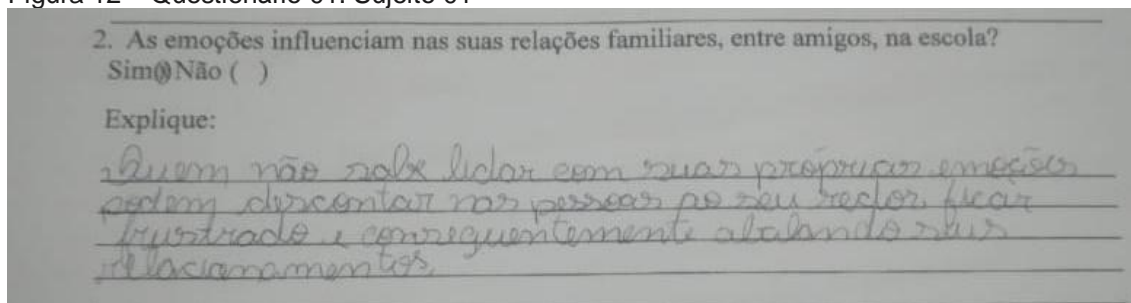 Figura 12 – Questionário 01. Sujeito 01
2. As emoções influenciam nas suas relações familiares, entre amigos, na escola?
Sim(x) Não ( )
Explique:
Quem não sabe lidar com suas próprias emoções
podem descontar nas pessoas ao seu redor, ficar
frustrado e consequentemente abalando seus
relacionamentos.